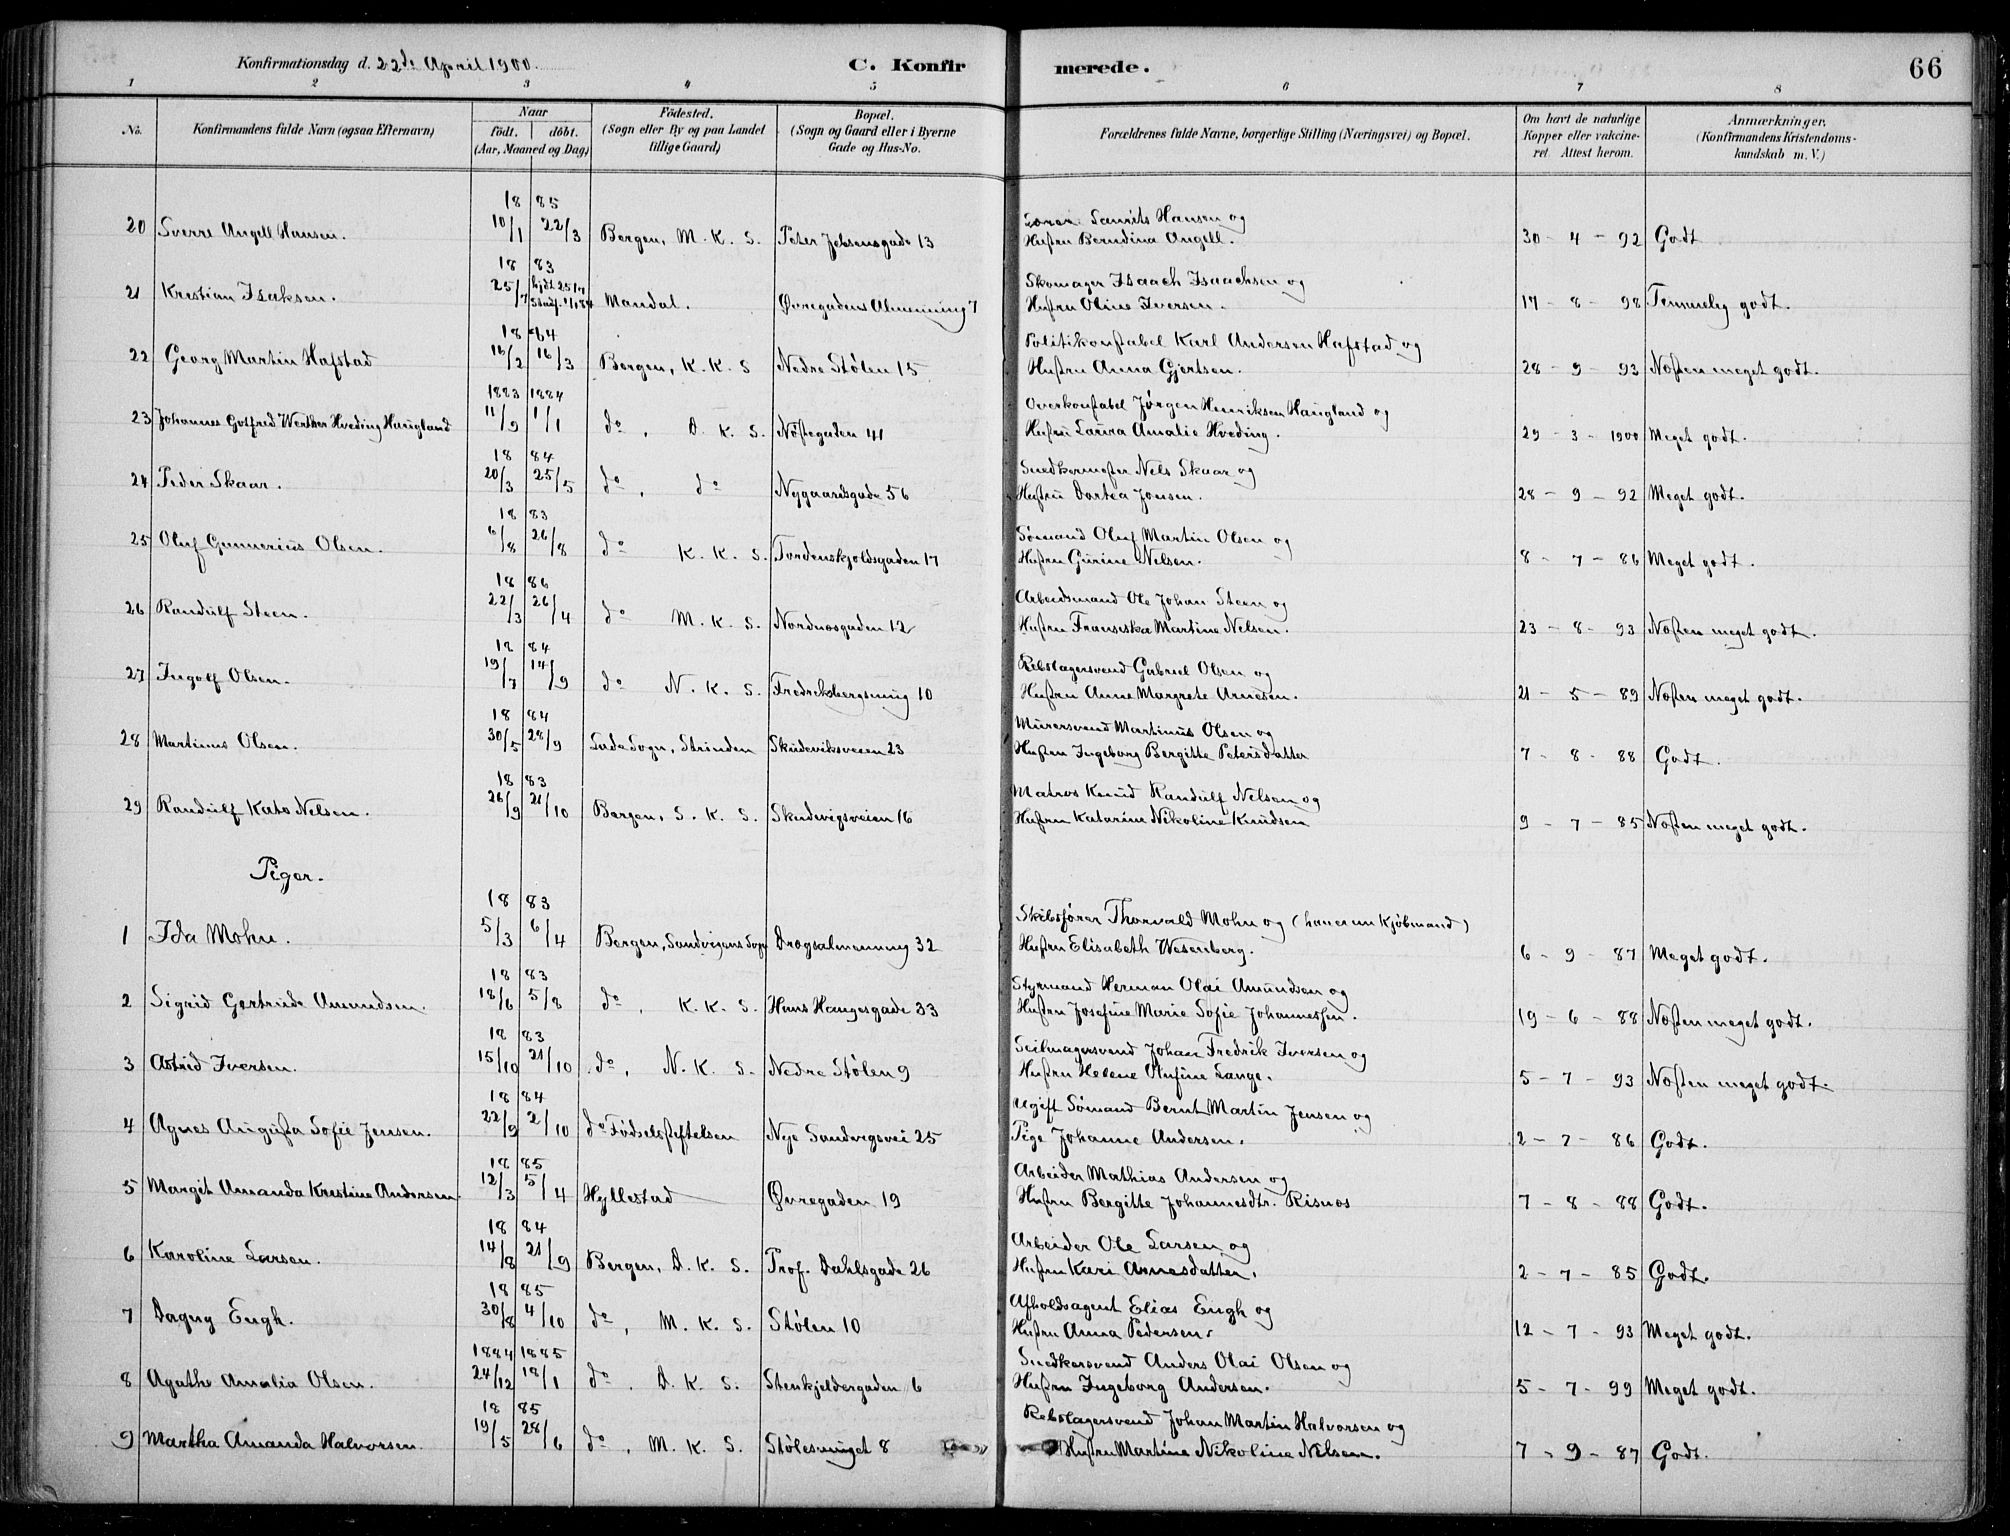 Konfirmationsdag d. 22de April 1900. C. Konfirmerede. 66
1 2 3 4 5 6 7 8
No. Konfirmandens fulde Navn (ogsaa Efternavn) Naar født. døbt. (Aar, Maaned og Dag) Fødested. (Sogn eller By og paa Landet tillige Gaard) Bopæl. (Sogn og Gaard eller i Byerne Gade og Hus-No. Forældrenes fulde Navne, borgerlige Stilling (Næringsvei) og Bopæl. Om havt de naturlige Kopper eller vakcineret. Attest herom. Anmærkninger. (Konfirmandens Kristendomskundskab m. V.)
18 85
20 Sverre Angell Hansen. 10/1 22/3 Bergen, M. K. S. Peter Jebsensgade 13 Laurits Hansen og
Hustru Berndina Angell. 30 - 4 - 92 Godt
18 83
21 Kristian Isaksen. 25/7 hjdt 25/7 Mandal. Øvregadens Almenning 7 Skomager Isaach Isaachsen og
Hustru Oline Iversen. 17 - 8 - 98 Temmelig godt.
18 84
22 Georg Martin Hafstad 16/2 16/3 Bergen, K. K. S Nedre Stølen 15 Politikonstabel Karl Andersen Hafstad og
Hustru Anna Gjertsen. 28 - 9 - 93 Næsten meget godt.
1883 1884
23 Johannes Gotfred Werther Hveding Haugland 11/9 1/1 do, D. K. S. Nøstegaden 41 Overkonstabel Jørgen Henriksen Haugland og
Hustru Laura Amalie Hveding. 29 - 3 - 1900 Meget godt.
18 84
24 Peder Skaar. 20/3 25/5 do, do Nygaardsgade 56 Snedkermester Nels Skaar og
Hustru Dortea Jonsen. 28 - 9 - 92 Meget godt.
18 83
25 Oluf Gunnerius Olsen. 6/8 26/8 do K. K. S. Tordenskjoldsgaden 17 Sømand Oluf Martin Olsen og
Hustru Gurine Nelsen. 8 - 7 - 86 Meget godt.
18 86
26 Randulf Steen. 22/3 26/4 do M. K. S. Nordnæsgaden 12 Arbeidsmand Ole Johan Steen og
Hustru Fransiska Martine Nelsen. 23 - 8 - 93 Næsten meget godt.
18 84
27 Ingolf Olsen. 19/7 14/9 do N. K. S. Fredriksbergsmug 10 Rebslagersvend Gabriel Olsen og
Hustru Anne Margrete Arnesen. 21 - 5 - 89 Næsten meget godt.
18 84
28 Martinus Olsen. 30/5 28/9 Lade Sogn, Strinden Skudeviksveien 23 Murersvend Martinus Olsen og
Hustru Ingeborg Bergitte Petersdatter 7 - 8 - 88 Godt.
18 83
29 Randulf Kato Nelsen. 26/9 21/10 Bergen, S. K. S. Skudevigsveien 16 Matros Knud Randulf Nelsen og
Hustru Katarine Nikoline Knudsen 9 - 7 - 85 Næsten meget godt.
Piger.
18 83
1 Ida Mohn. 5/3 6/4 Bergen, Sandvigens Sogn Dregsalmenning 32 Skibsfører Thorvald Mohn og (han er nu Kjøbmand)
Hustru Elisabeth Wesenberg. 6 - 9 - 87 Meget godt.
18 83
2 Sigrid Gertrude Amundsen. 18/6 5/8 do, K. K. S. Hans Haugesgade 33 Styrmand Herman Olai Amundsen og
Hustru Josefine Marie Sofie Johannessen. 19 - 6 - 88 Næsten meget godt.
18 83
3 Astrid Iversen. 15/10 21/10 do, N. K. S. Nedre Stølen 9 Seilmagersvend Johan Fredrik Iversen og
Hustru Helene Olufine Lange. 5 - 7 - 93 Næsten meget godt.
18 84
4 Agnes Augusta Sofie Jensen. 22/9 2/10 do Fødselsstiftelsen Nye Sandvigsvei 25 Ugift Sømand Bernt Martin Jensen og
Pige Johanne Andersen. 2 - 7 - 86 Godt.
18 85
5 Margit Amanda Kristine Andersen. 12/3 5/4 Hyllestad Øvregaden 19 Arbeider Mathias Andersen og
Hustru Bergitte Johannesdtr. Risnæs 7 - 8 - 88 Godt.
18 84
6 Karoline Larsen. 14/8 21/9 Bergen, D. K. S. Prof. Dahlsgade 26 Arbeider Ole Larsen og
Hustru Kari Arnesdatter. 2 - 7 - 85 Godt.
18 85
7 Dagny Engh. 30/8 4/10 do, M. K. S. Stølen 10 Afholdsagent Elias Engh og
Hustru Anna Pedersen. 12 - 7 - 93 Meget godt.
1884 1885
8 Agathe Amalia Olsen. 24/12 18/1 do, D. K. S. Stenkjeldergaden 6 Snedkersvend Anders Olai Olsen og
Hustru Ingeborg Andersen. 5 - 7 - 99 Meget godt.
18 85
9 Martha Amanda Halvorsen. 19/5 28/6 do, M. K. S. Stølesmuget 8 Rebslagersvend Johan Martin Halvorsen og
Hustru Martine Nikoline Nelsen. 7 - 9 - 87 Godt.